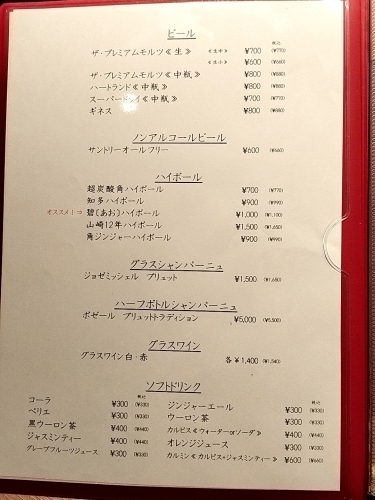 ビール
税込
ザ・プレミアムモルツ≪生≫ ≪生中≫ ¥700 (¥770)
≪生小≫ ¥600 (¥660)
ザ・プレミアムモルツ≪中瓶≫ ¥800 (¥880)
ハートランド≪中瓶≫ ¥800 (¥880)
スーパードライ≪中瓶≫ ¥700 (¥770)
ギネス ¥800 (¥880)
ノンアルコールビール
サントリーオールフリー ¥600 (¥660)
ハイボール
税込
超炭酸角ハイボール ¥700 (¥770)
知多ハイボール ¥900 (¥990)
オススメ!⇒ 碧(あお)ハイボール ¥1,000 (¥1,100)
山崎12年ハイボール ¥1,500 (¥1,650)
角ジンジャーハイボール ¥900 (¥990)
グラスシャンパーニュ
ジョゼミッシェル ブリュット ¥1,500 (¥1,650)
ハーフボトルシャンパーニュ
ボゼール ブリュットトラディション ¥5,000 (¥5,500)
グラスワイン
グラスワイン白・赤 各¥1,400 (¥1,540)
ソフトドリンク
税込
コーラ ¥300 (¥330)
ペリエ ¥300 (¥330)
黒ウーロン茶 ¥400 (¥440)
ジャスミンティー ¥400 (¥440)
グレープフルーツジュース ¥300 (¥330)
税込
ジンジャーエール ¥300 (¥330)
ウーロン茶 ¥300 (¥330)
カルピス≪ウォーターorソーダ≫ ¥400 (¥440)
オレンジジュース ¥300 (¥330)
カルミン≪カルピス+ジャスミンティー≫ ¥600 (¥660)